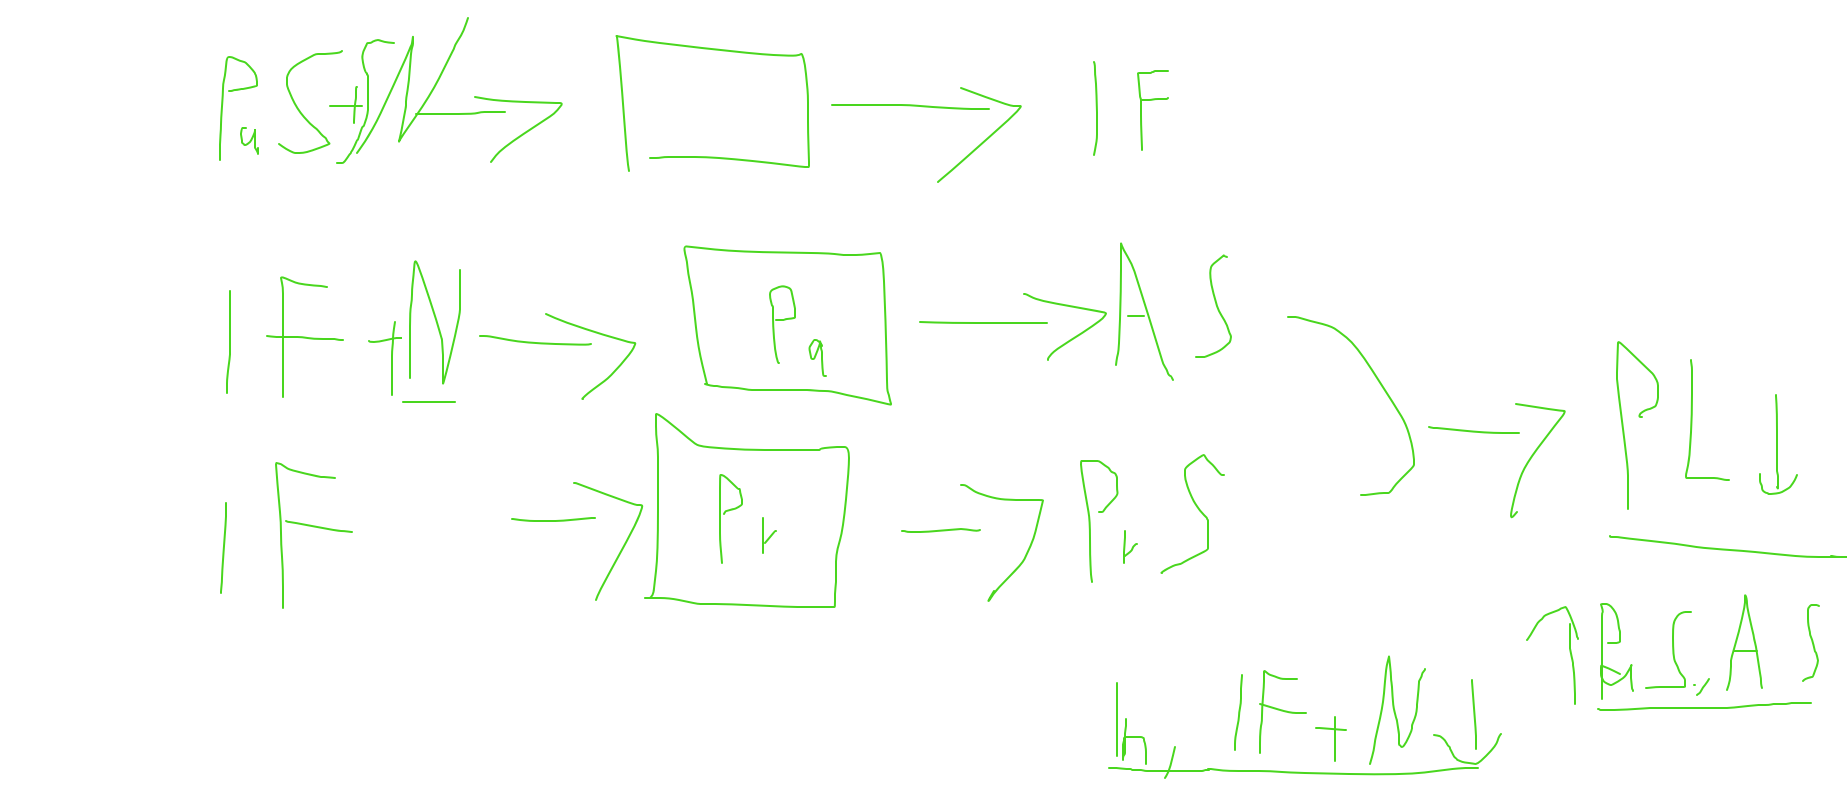 PaS+ → IF
IF+N → Pa → AS
→ PL↓
IF → Pr → PrS
↑PaS, AS
In, IF+N↓